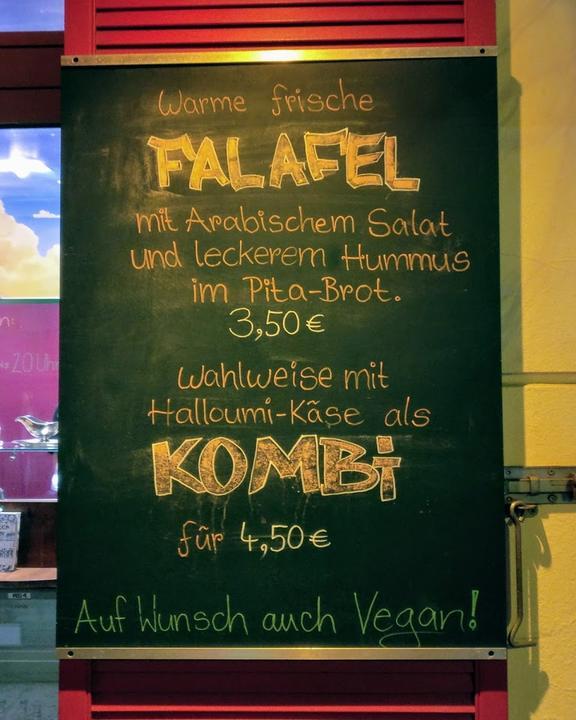 Warme frische
FALAFEL
mit Arabischem Salat
und leckerem Hummus
im Pita-Brot.
3,50€
Wahlweise mit
Halloumi-Käse als
KOMBi
für 4,50€
Auf Wunsch auch Vegan!
20 Uhr